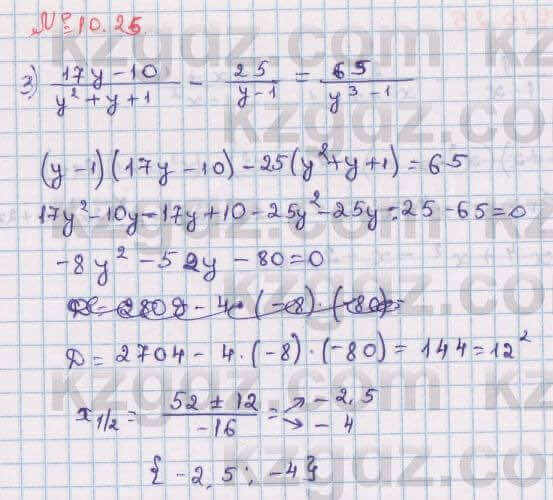 № 10.25
3) (17y-10)/(y²+y+1) - 25/(y-1) = 65/(y³-1)
(y-1)(17y-10)-25(y²+y+1)=65
17y²-10y-17y+10-25y²-25y-25-65=0
-8y²-52y-80=0
D = 2704-4·(-8)·(-80)=144=12²
x₁/₂ = (52±12)/(-16) = → -2,5 → -4
{-2,5; -4}
kzgdz.com